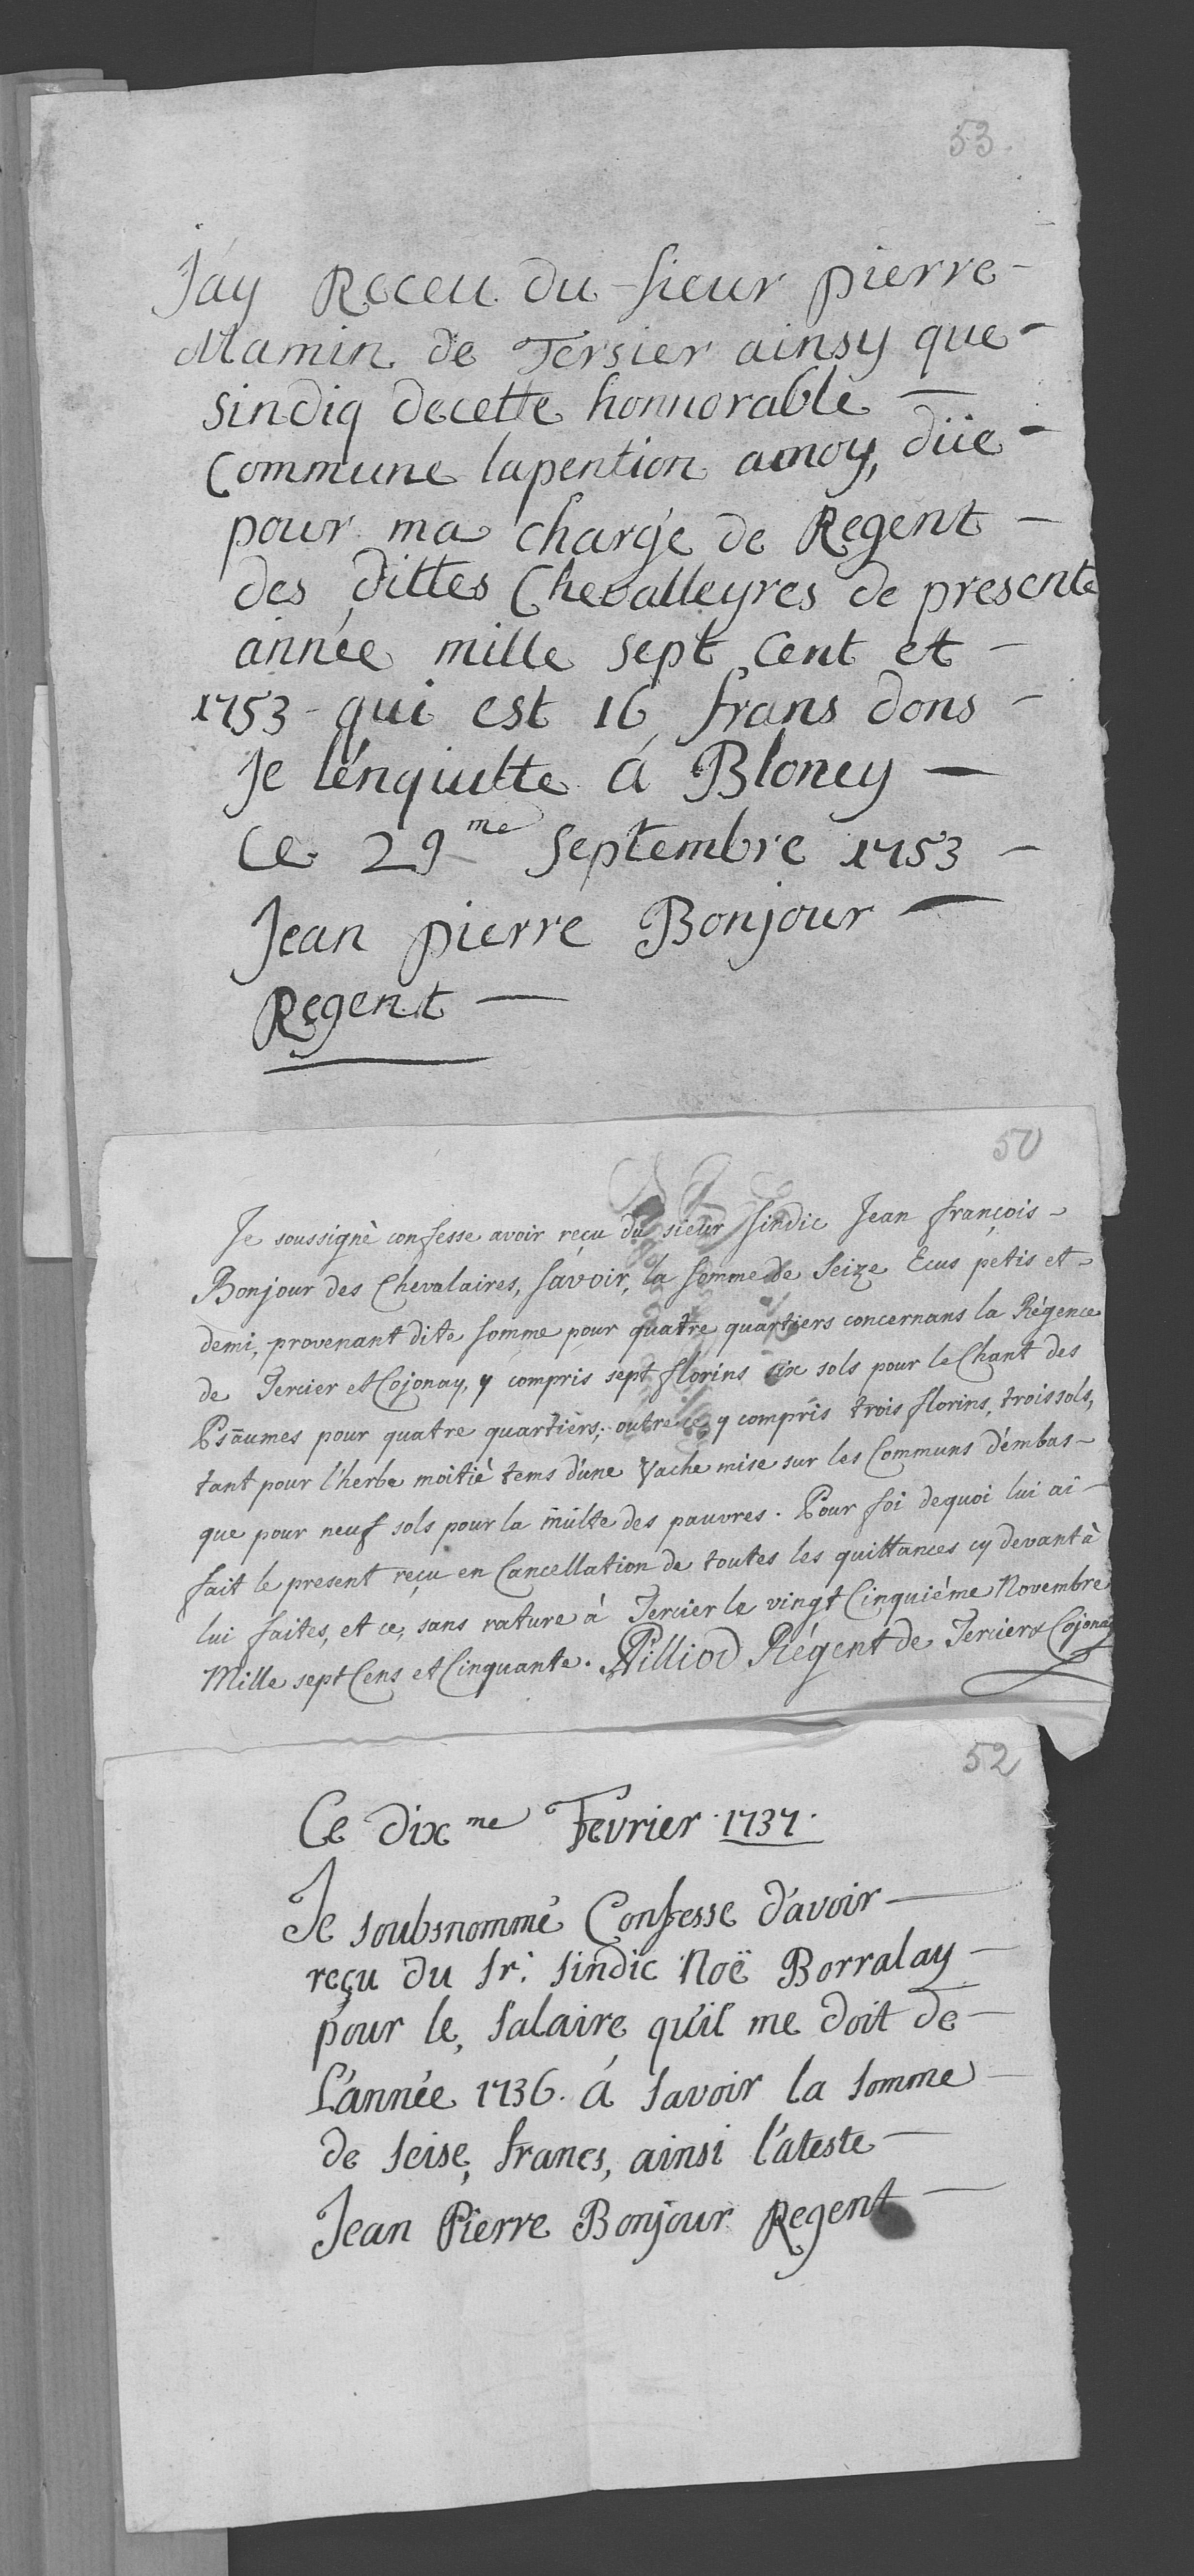 53.
Jáy Receu du sieur pierre -
Mamin de Tersier ainsy que -
sindiq decette honnorable —
Commune lapention amoy, düe -
pour ma charge de Regent -
des dittes Chevalleyres de presente
année mille sept cent et -
1753 - qui est 16 frans dons -
Je lénquitte á Bloney —
Ce 29me septembre 1753 -
Jean pierre Bonjour —
Regent —
50
Je soussignè confesse avoir reçu du sieur sindic Jean françois -
Bonjour des Chevalaires, savoir, la somme de seize Ecus petis et -
demi, provenant dite somme pour quatre quartiers concernans la Régence
de Tercier et Cojonay, y compris sept florins six sols pour le Chant des
Psaumes pour quatre quartiers; outre ce y compris trois florins, trois sols,
tant pour l'herbe moitiè tems d'une Vache mise sur les Communs d'embas -
que pour neuf sols pour la multe des pauvres. Pour foi dequoi lui aî -
fait le present reçu en Cancellation de toutes les quittances cy devant à
lui faites, et ce, sans rature à Tercier le vingt Cinquiéme Novembre
Mille sept Cens et Cinquante. Pilliod Régent de Tercier & Cojonay
52
Ce dixme Fevrier 1737.
Je soubsnommé Confesse d'avoir —
reçu du sr. sindic Noë Borralay -
pour le, salaire qu'il me doit de -
L'année 1736. á savoir la somme -
de seise, francs, ainsi l'ateste -
Jean Pierre Bonjour Regent —